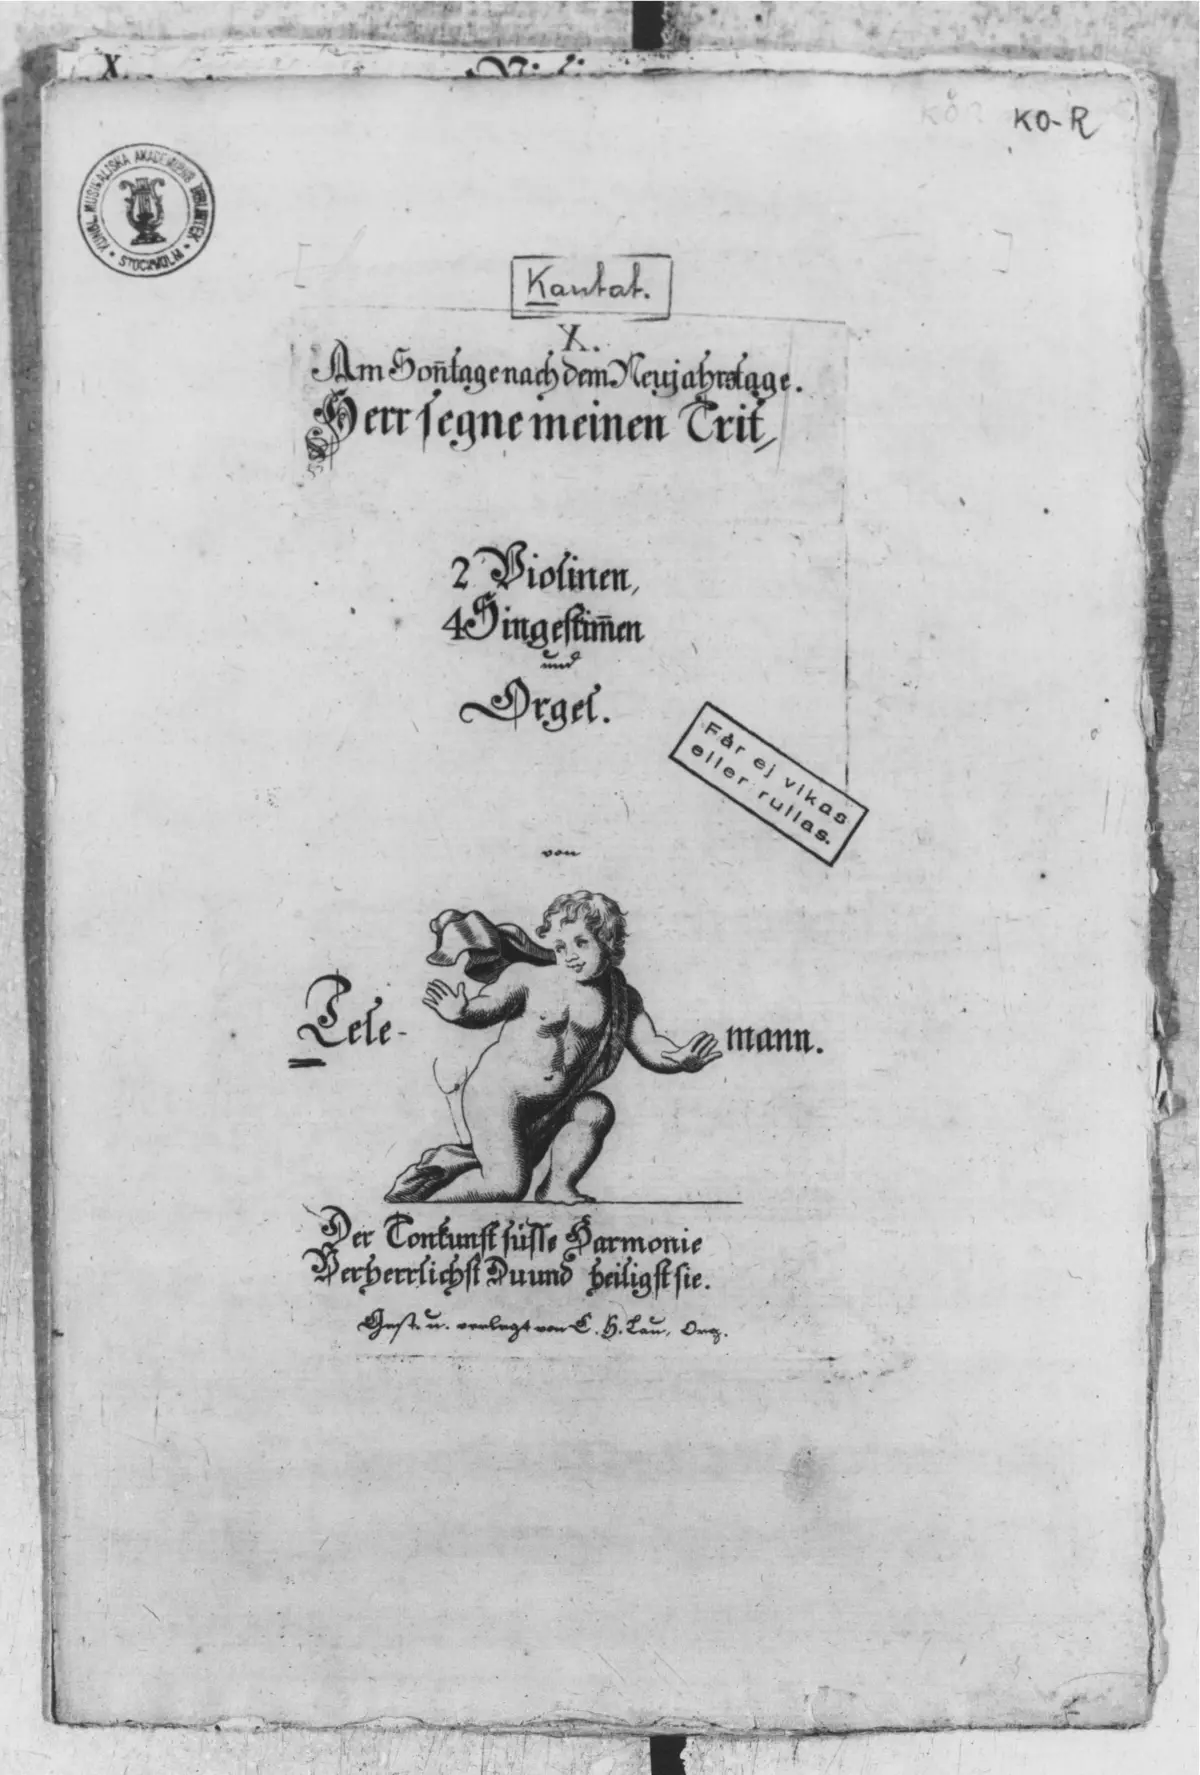 X.
KO-R
KUNGL. MUSIKALISKA AKADEMIENS BIBLIOTEK • STOCKHOLM •
Kantat.
X.
Am Soñtage nach dem Neujahrstage.
Herr segne meinen Trit,
2 Violinen,
4 Singestim̄en
und
Orgel.
Får ej vikas
eller rullas.
von
Tele-mann.
Der Tonkunst süsse Harmonie
Verherrlichst Du und heiligst sie.
Gest. u. verlegt von C. H. Lau, Org.